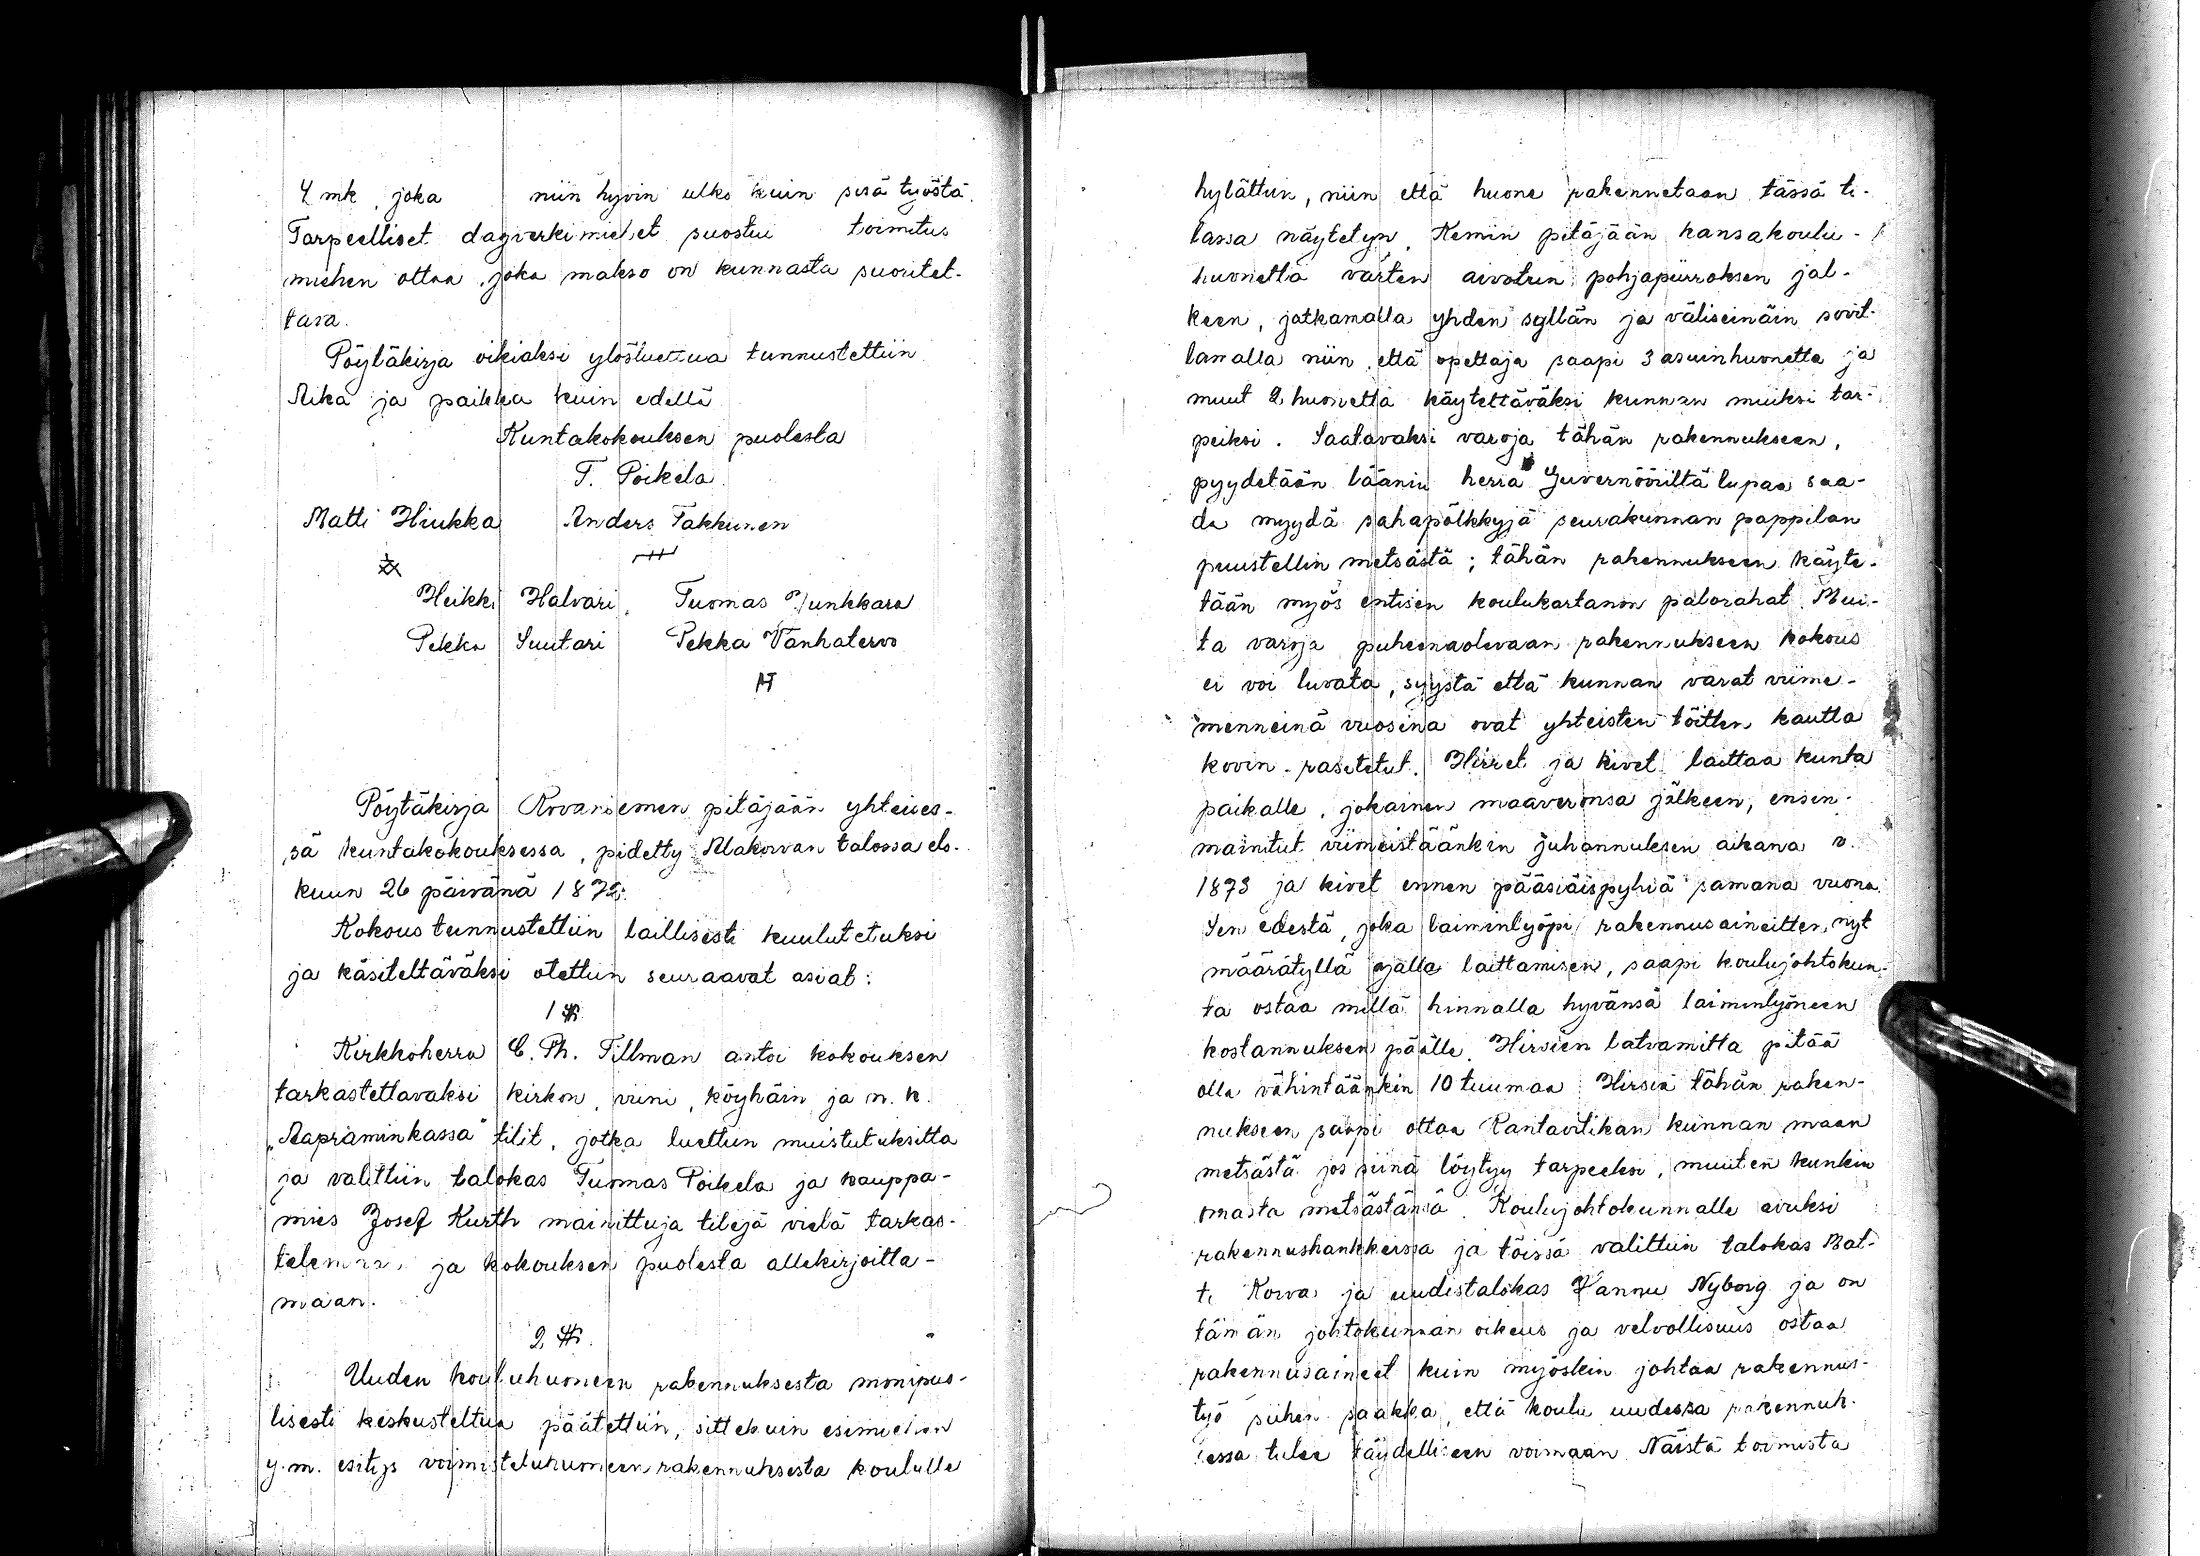 4 mk, joka niin hyvin ulko kuin sisä työstä.
Tarpeelliset dagverkimiehet suostui toimitus
miehen ottaa, joka makso on kunnasta suoritet-
tava.
Pöytäkirja oikiaksi ylösluettua tunnustettiin
Aika ja paikka kuin edellä
Kuntakokouksen puolesta
T. Poikela.
Matti Hiukka Anders Takkunen
Heikki Halvari, Tuomas Junkkara
Pekka Suutari Pekka Vanhatervo
Pöytäkirja Rovaniemen pitäjään yhteises-
sä kuntakokouksessa, pidetty Alakorvan talossa elo-
kuun 26 päivänä 1872.
Kokous tunnustettiin laillisesti kuulutetuksi
ja käsiteltäväksi otettiin seuraavat asiat:
1 §
Kirkkoherra C. Ph. Tillman antoi kokouksen
tarkastettavaksi kirkon, viini, köyhäin ja n. k.
„Aapraminkassa" tilit, jotka luettiin muistutuksitta
ja valittiin talokas Tuomas Poikela ja kauppa-
mies Josef Kurth mainittuja tilejä vielä tarkas-
telemaan ja kokouksen puolesta allekirjoitta-
maan.
2 §.
Uuden kouluhuoneen rakennuksesta monipuo-
lisesti keskusteltua päätettiin, sittekuin esimiehen
y.m. esitys voimisteluhuoneen rakennuksesta koululle
hylättiin, niin että huone rakennetaan tässä ti-
lassa näytetyn, Kemin pitäjään kansakoulu-
huonetta varten aivotun pohjapiirroksen jäl-
keen, jatkamalla yhden syllän ja väliseinäin sovit-
tamalla niin, että opettaja saapi 3 asuinhuonetta ja
muut 2 huonetta käytettäväksi kunnan muiksi tar-
peiksi. Saatavaksi varoja tähän rakennukseen,
pyydetään läänin herra Guvernööriltä lupaa saa-
da myydä sahapölkkyjä seurakunnan pappilan
puustellin metsästä; tähän rakennukseen käyte-
tään myös entisen koulukartanon palorahat. Mui-
ta varoja puheenaolevaan rakennukseen kokous
ei voi luvata, syystä että kunnan varat viime-
menneinä vuosina ovat yhteisten töitten kautta
kovin rasitetut. Hirret ja kivet laittaa kunta
paikalle, jokainen maaveronsa jälkeen, ensin-
mainitut viimeistäänkin Juhannuksen aikana v.
1873 ja kivet ennen pääsiäispyhiä samana vuona.
Sen edestä, joka laiminlyöpi rakennusaineitten nyt
määrätyllä ajalla laittamisen, saapi koulujohtokun-
ta ostaa millä hinnalla hyvänsä laiminlyöneen
kostannuksen päälle. Hirsien latvamitta pitää
olla vähintäänkin 10 tuumaa. Hirsiä tähän raken-
nukseen saapi ottaa Rantavitikan kunnan maan
metsästä jos siinä löytyy tarpeeksi, muuten kunkin
omasta metsästänsä. Koulujohtokunnalle avuksi
rakennushankkeissa ja töissä valittiin talokas Mat-
ti Korva ja uudistalokas Hannu Nyborg ja on
tämän johtokunnan oikeus ja velvollisuus ostaa
rakennusaineet kuin myöskin johtaa rakennus-
työ siihen saakka, että koulu uudessa rakennuk-
sessa tulee täydelliseen voimaan. Näistä toimista